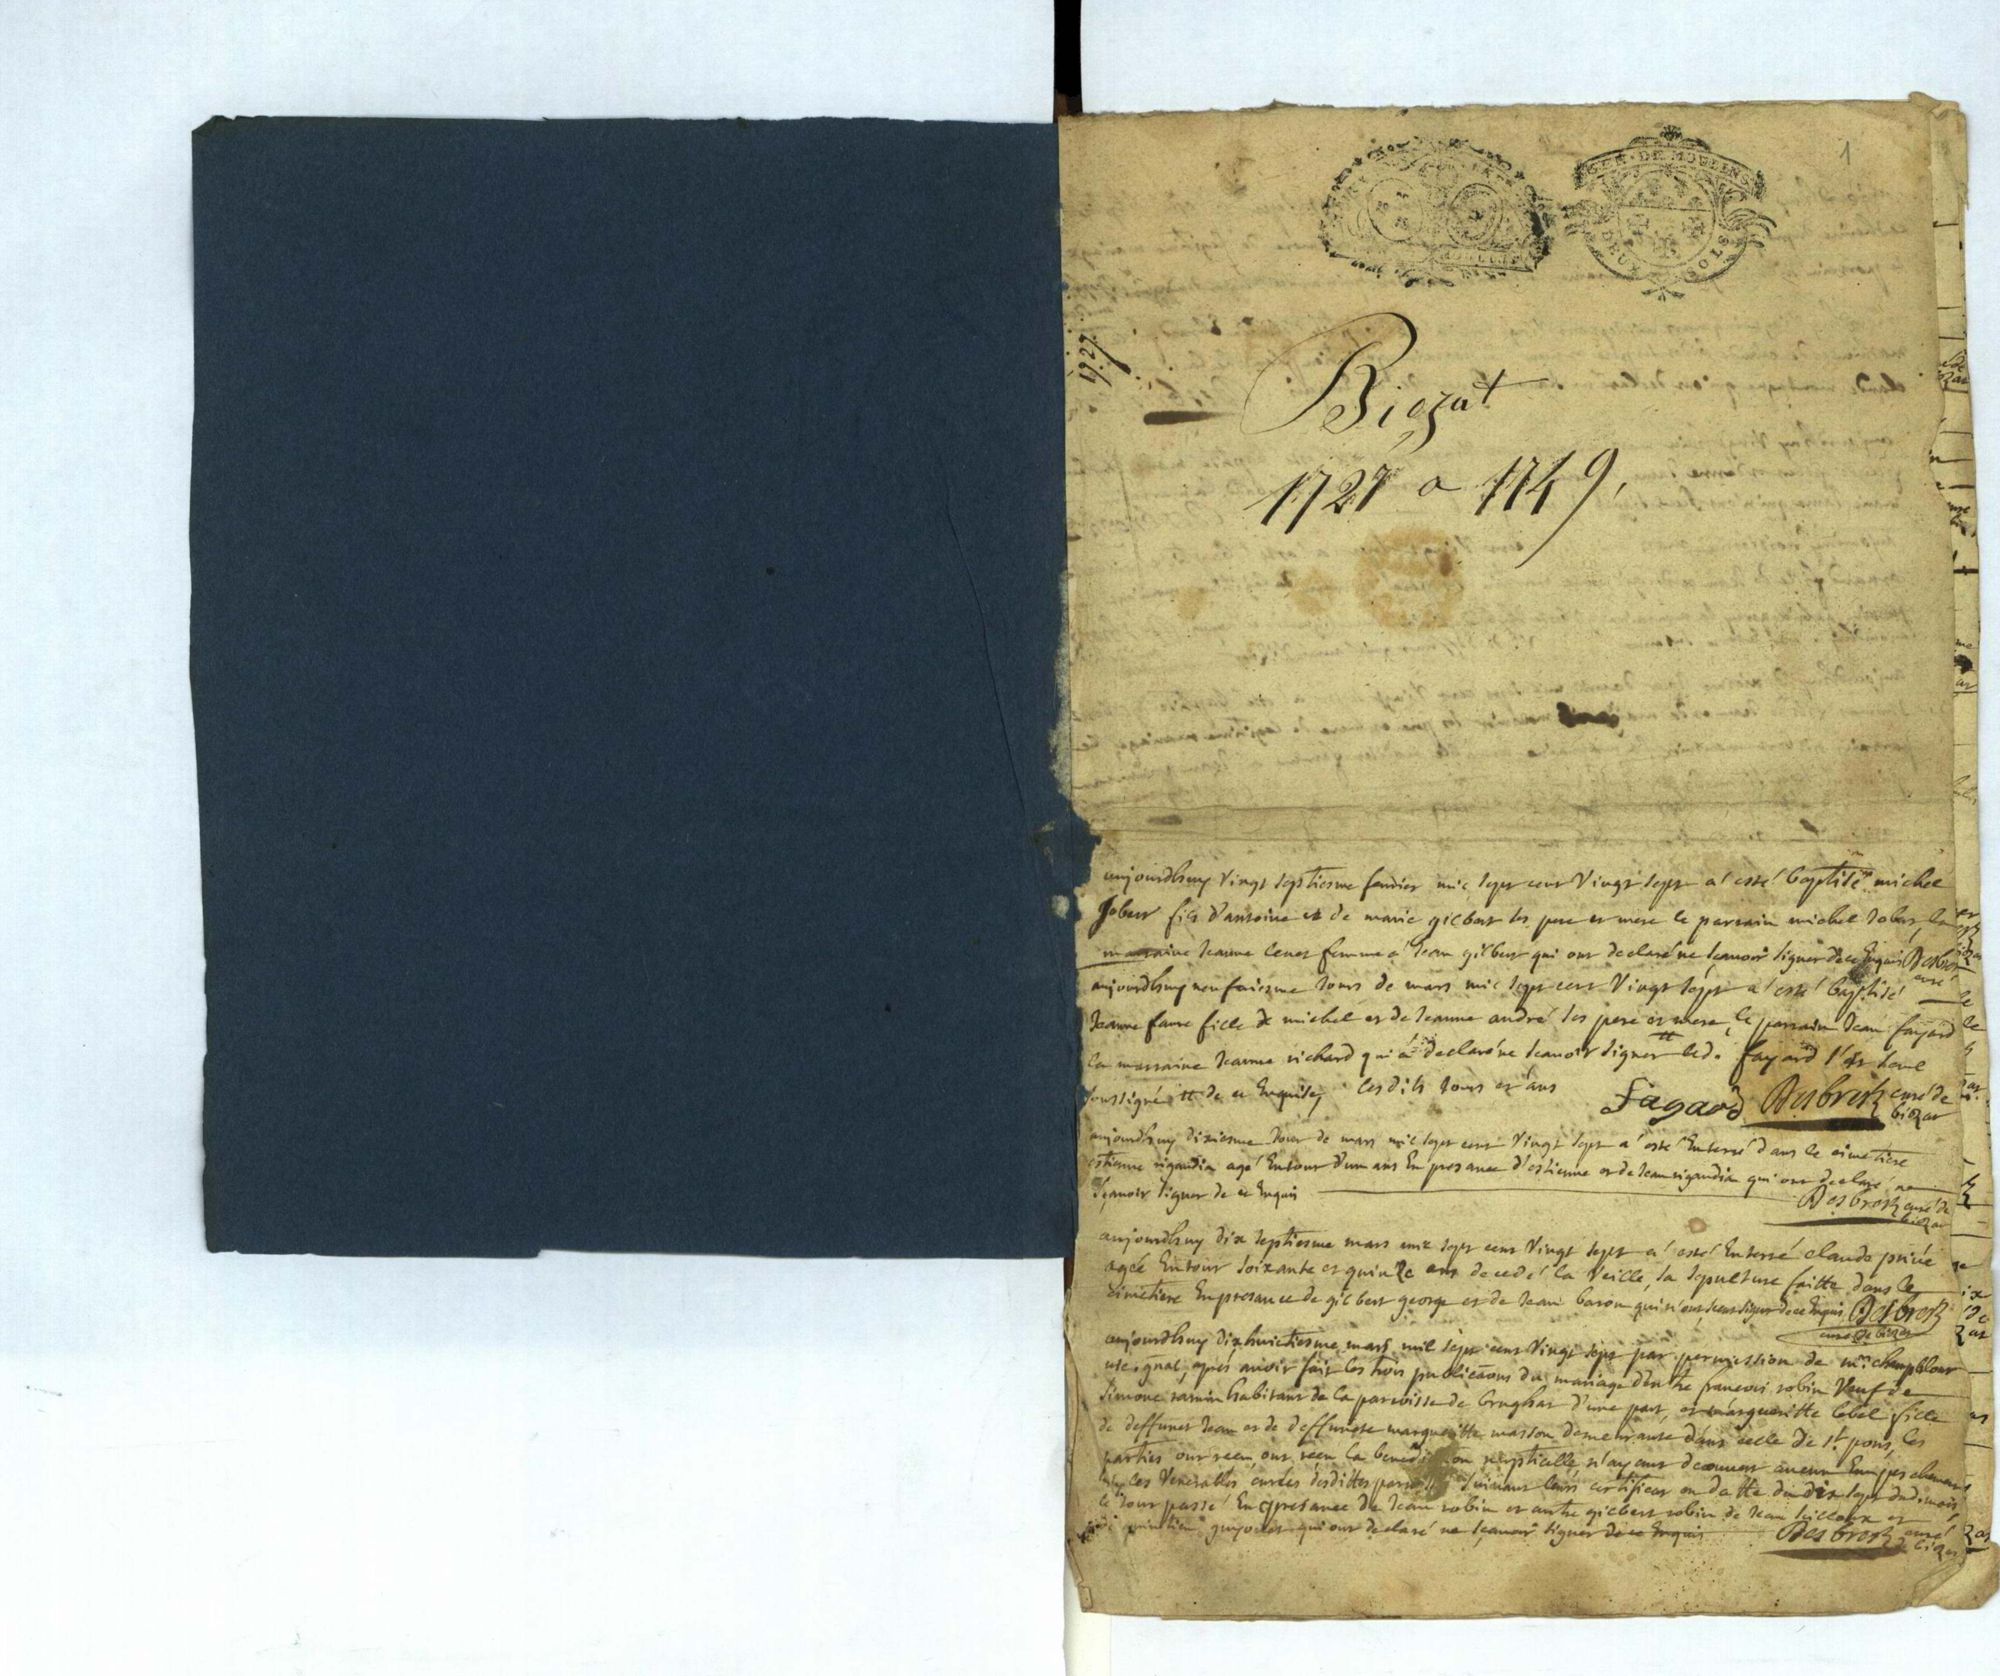 1
GEN · DE MOULINS
DEUX SOLS
1727
Biozat
1727 a 1749,
aujourdhuy vingt septiesme feuvrier mil sept cent vingt sept a esté baptisé michel
Jobert fils d'antoine et de marie gilbert ses pere et mere le parrain michel Jobert, la
marraine Jeanne femme a Jean gilbert qui ont declaré ne sçavoir signer de ce Enquis Desbrest
curé
aujourdhuy neufviesme Jours de mars mil sept cent vingt sept a esté baptisé
Jeanne faure fille de michel et de Jeanne andré ses pere et mere, le parrain Jean fayard
la marraine Jeanne richard qui a declaré ne scavoir signer led. fayard s'est
soussigné de ce Enquise, lesdits Jours et ans
Fagard Desbrest curé de
biozat
aujourdhuy dixiesme Jour de mars mil sept cent vingt sept a esté Enterré dans le cimetiere
estienne rigaudia agé Entour d'un ans En presance d'estienne et de Jean rigaudia qui ont declaré ne
sçavoir signer de ce Enquis
Desbrest curé de
biozat
aujourdhuy dix septiesme mars mil sept cent vingt sept a esté Enterré claude privé
agée Entour soixante et quinze ans decedé la veille, sa sepulture faitte dans le
cimetiere En presance de gilbert george et de Jean baron qui n'ont sceu signer de ce Enquis Desbrest
curé de biozat
aujourdhuy dix huictiesme mars mil sept cent vingt sept par permission de mr champflour
vic. gnal, aprés avoir fait les trois publicaons du mariage d'entre francois robin veuf de
Simone ramin habitant de la parroisse de brughat d'une part, et margueritte lebel fille
de deffunct Jean et de deffuncte margueritte masson demeurante dans celle de st pons, les
parties ont receu la benediction nuptialle, n'ayant decouvert aucun Empeschement
les venerables curées desdittes parroisses suivant leurs certificat en datte du dix sept du mois,
le Jour passé En presance de Jean robin et autre gilbert robin de Jean et
qui ont declaré ne sçavoir signer de ce Enquis Desbrest curé
de biozat